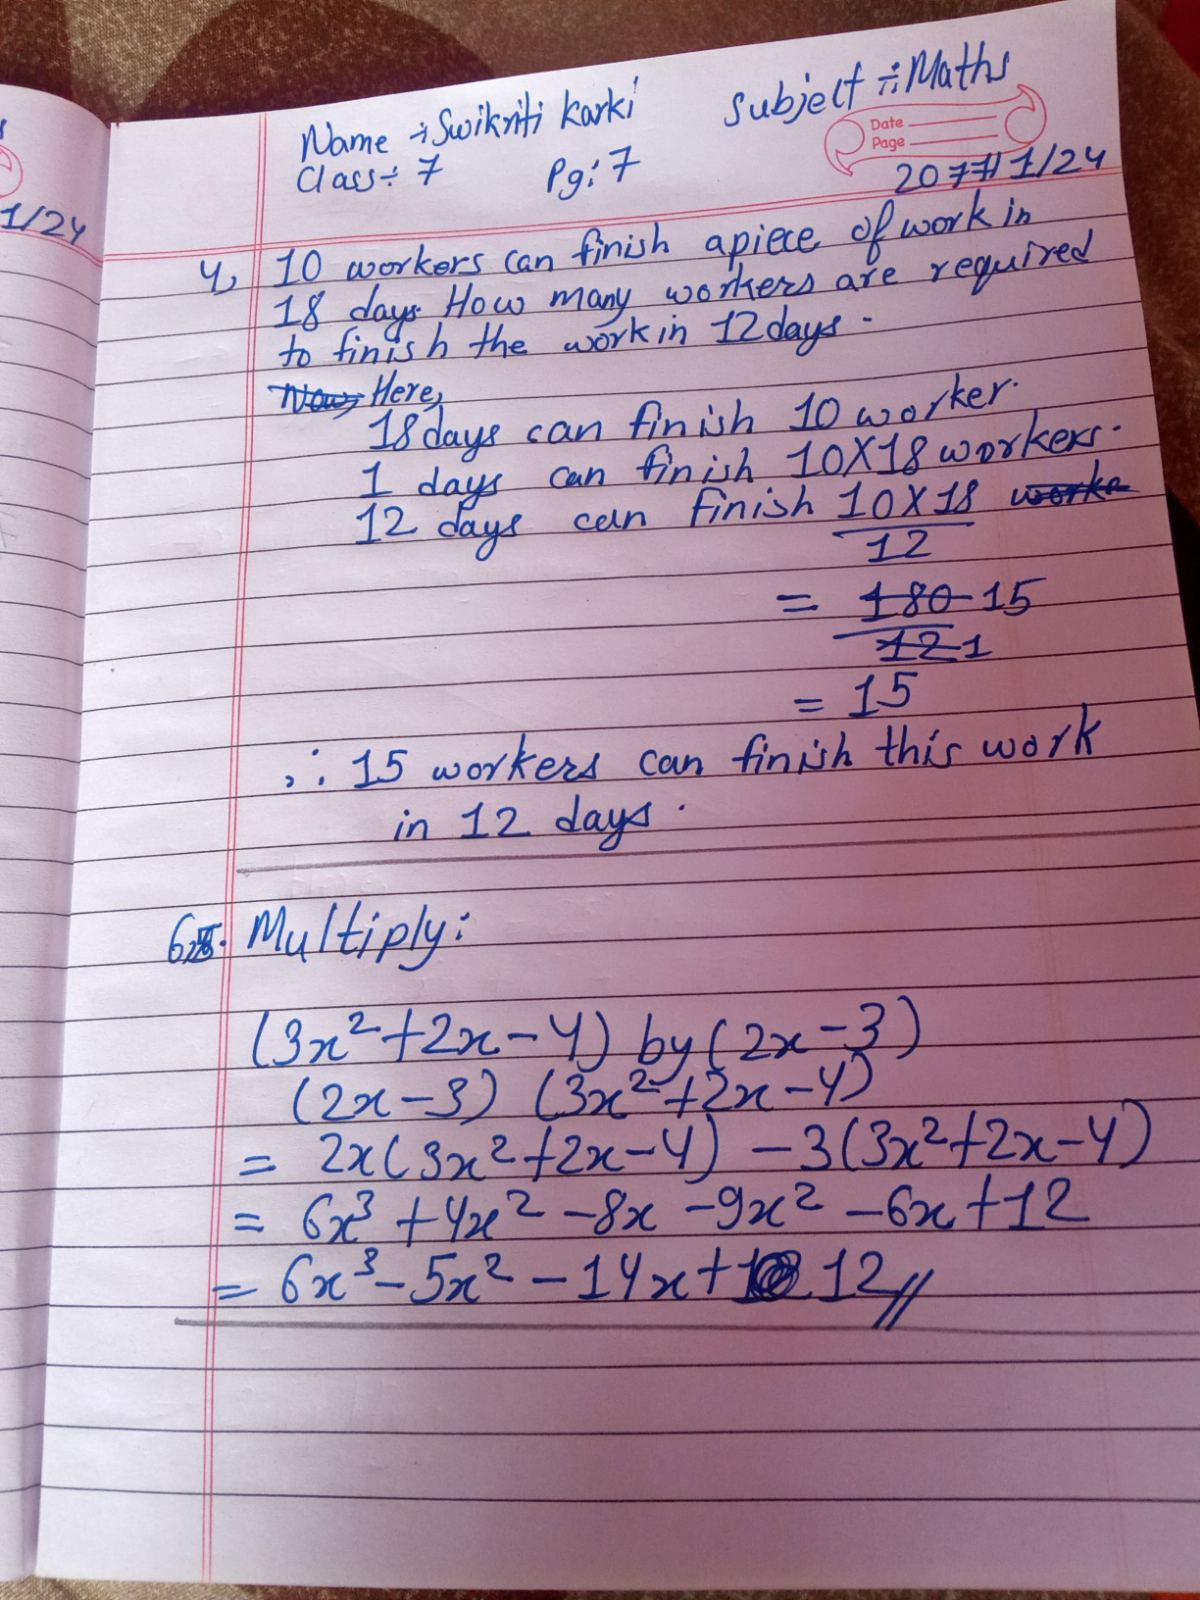 Name :- Swikriti Karki Subject :- Maths
Date
Page
Class :- 7 Pg: 7
2077/1/24
1/24
4, 10 workers can finish a piece of work in
18 days. How many workers are required
to finish the work in 12 days.
Now, Here,
18 days can finish 10 worker.
1 days can finish 10X18 workers.
12 days can finish 10X18 worke
12
= 180 15
12 1
= 15
∴ 15 workers can finish this work
in 12 days.
6. Multiply:
(3x²+2x-4) by (2x-3)
(2x-3) (3x²+2x-4)
= 2x(3x²+2x-4) -3(3x²+2x-4)
= 6x³ +4x² -8x -9x² -6x+12
= 6x³ -5x² -14x+ 12//